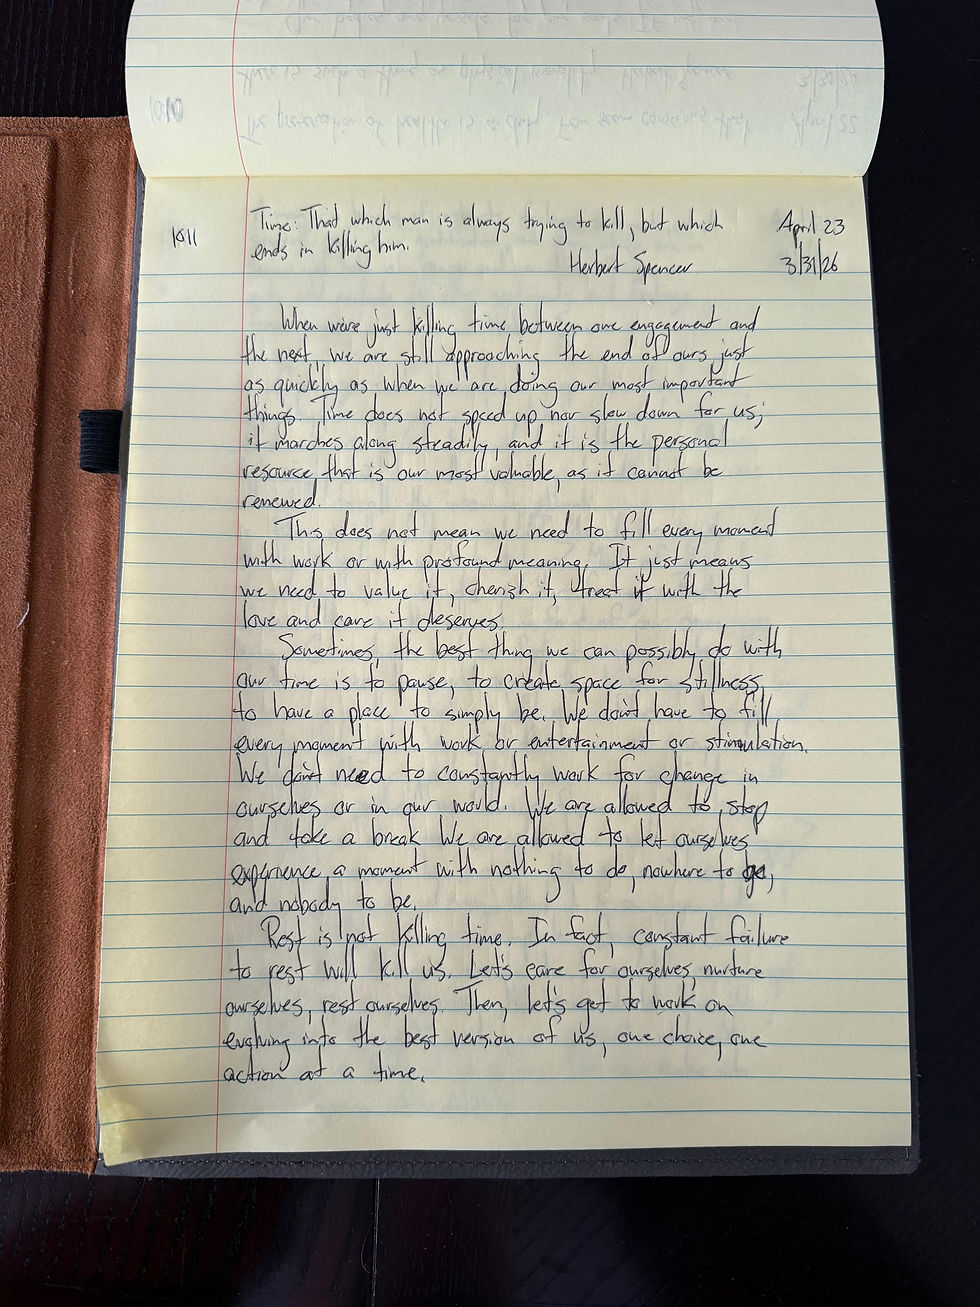 1011
Time: That which man is always trying to kill, but which
ends in killing him.
Herbert Spencer
April 23
3/31/26
When we're just killing time between one engagement and
the next, we are still approaching the end of ours just
as quickly as when we are doing our most important
things. Time does not speed up nor slow down for us;
it marches along steadily, and it is the personal
resource that is our most valuable, as it cannot be
renewed.
This does not mean we need to fill every moment
with work or with profound meaning. It just means
we need to value it, cherish it, treat it with the
love and care it deserves.
Sometimes, the best thing we can possibly do with
our time is to pause, to create space for stillness,
to have a place to simply be. We don't have to fill
every moment with work or entertainment or stimulation.
We don't need to constantly work for change in
ourselves or in our world. We are allowed to stop
and take a break. We are allowed to let ourselves
experience a moment with nothing to do, nowhere to go,
and nobody to be.
Rest is not killing time. In fact, constant failure
to rest will kill us. Let's care for ourselves, nurture
ourselves, rest ourselves. Then, let's get to work on
evolving into the best version of us, one choice, one
action at a time.